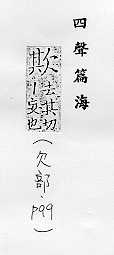 四聲篇海
欺去其切
妄也
(欠部.p99)